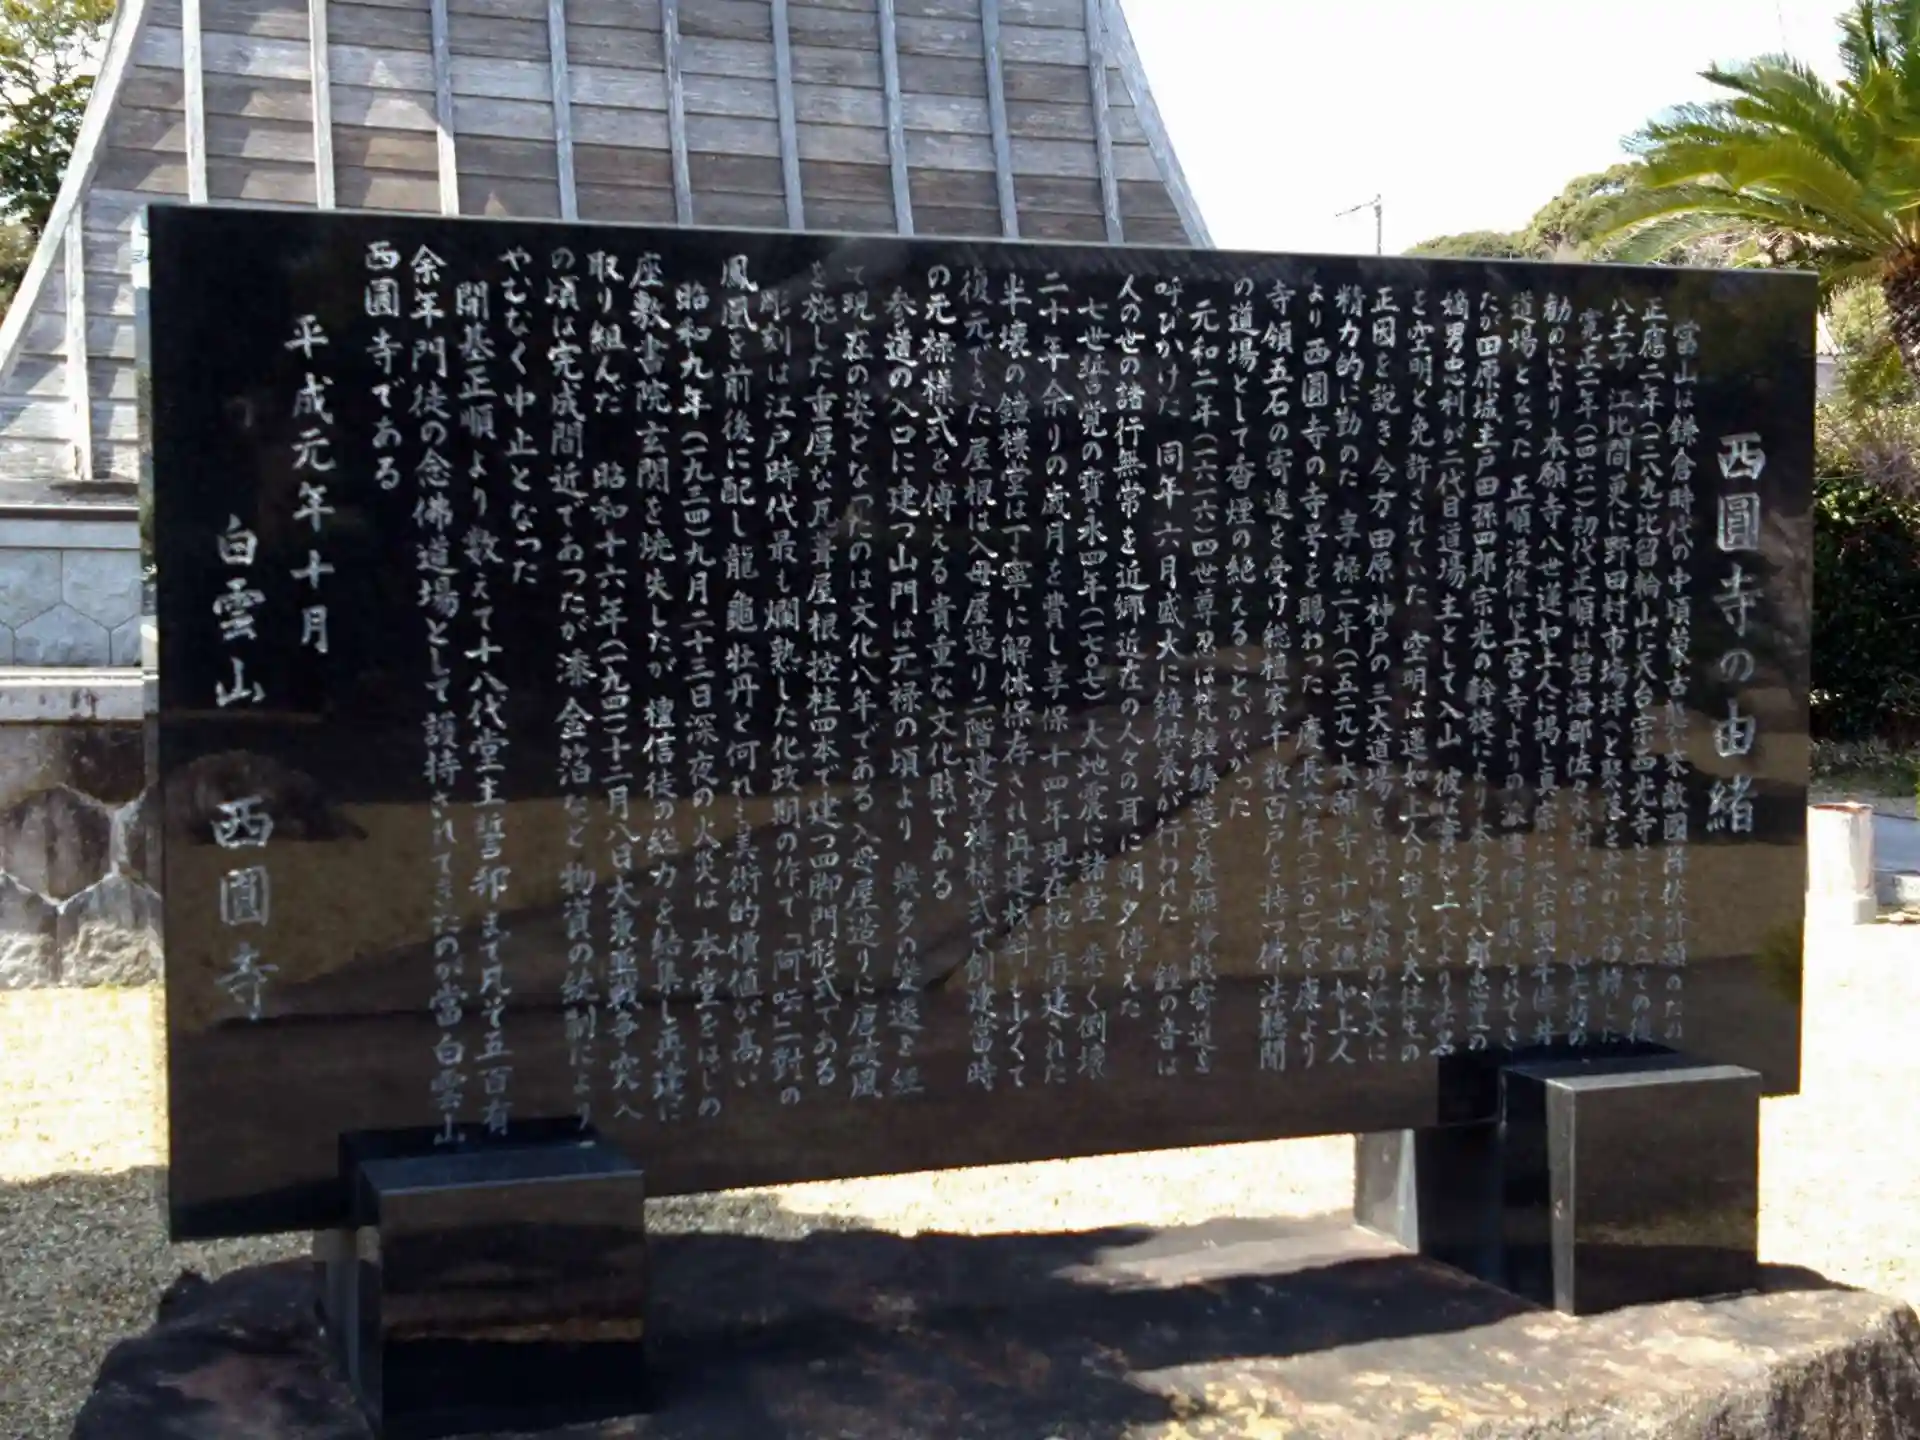 西圓寺の由緒
當山は鎌倉時代の中頃蒙古襲来敵國降伏祈願のため
正應二年(一二八九)比留輪山に天台宗西光寺として建立その後
八王子 江比間 更に野田村市場坪へと聚落を
寛正二年(一四六一)初代正順は碧海郡佐々木村上宮寺
勧めにより本願寺八世蓮如上人に謁し真宗に改宗
道場となった 正順没後は上宮寺よりの
たが田原城主戸田孫四郎宗光の斡旋により本多平八郎忠豊の
嫡男忠利が二代目道場主として入山 彼は實如上人より法名
を空明と免許されていた 空明は蓮如上人の説く凡夫往生の
正因を説き今方 田原 神戸の三大道場を設け教線の拡大に
精力的に勤めた 享禄二年(一五二九)本願寺十世證如上人
より西圓寺の寺号を賜わった 慶長六年(一六〇一)家康より
寺領五石の寄進を受け総檀家千数百戸を持つ佛法聴聞
の道場として香煙の絶えることがなかった
元和二年(一六一六)四世尊忍は梵鐘鋳造を發願 浄財寄進を
呼びかけた 同年六月盛大に鐘供養が行われた 鐘の音は
人の世の諸行無常を近郷近在の人々の耳に朝夕傳えた
七世誓覚の寳永四年(一七〇七)大地震に諸堂 悉く倒壊
二十年余りの歳月を費し享保十四年現在地に再建された
半壊の鐘樓堂は丁寧に解体保存され再建材料 もしくて
復元できた屋根は入母屋造り二階建 唐様様式で創建當時
の元禄様式を傳える貴重な文化財である
参道の入口に建つ山門は元禄の頃より 幾多の變遷を経
て現在の姿となったのは文化八年である 入母屋造りに唐破風
を施した重厚な瓦葺屋根 控柱四本で建つ四脚門形式である
彫刻は江戸時代最も爛熟した化政期の作で「阿吽」一對の
鳳凰を前後に配し龍 龜 牡丹と何れも美術的價値が高い
昭和九年(一九三四)九月二十三日深夜の火災は 本堂をはじめ
座敷書院玄関を焼失したが 檀信徒の総力を結集し再建に
取り組んだ 昭和十六年(一九四一)十二月八日大東亜戦争突入
の頃は完成間近であったが漆 金箔など物資の統制により
やむなく中止となった
開基正順より数えて十八代堂主誓邦まで凡そ五百有
余年門徒の念佛道場として護持されてきたのが當白雲山
西圓寺である
平成元年十月
白雲山 西圓寺